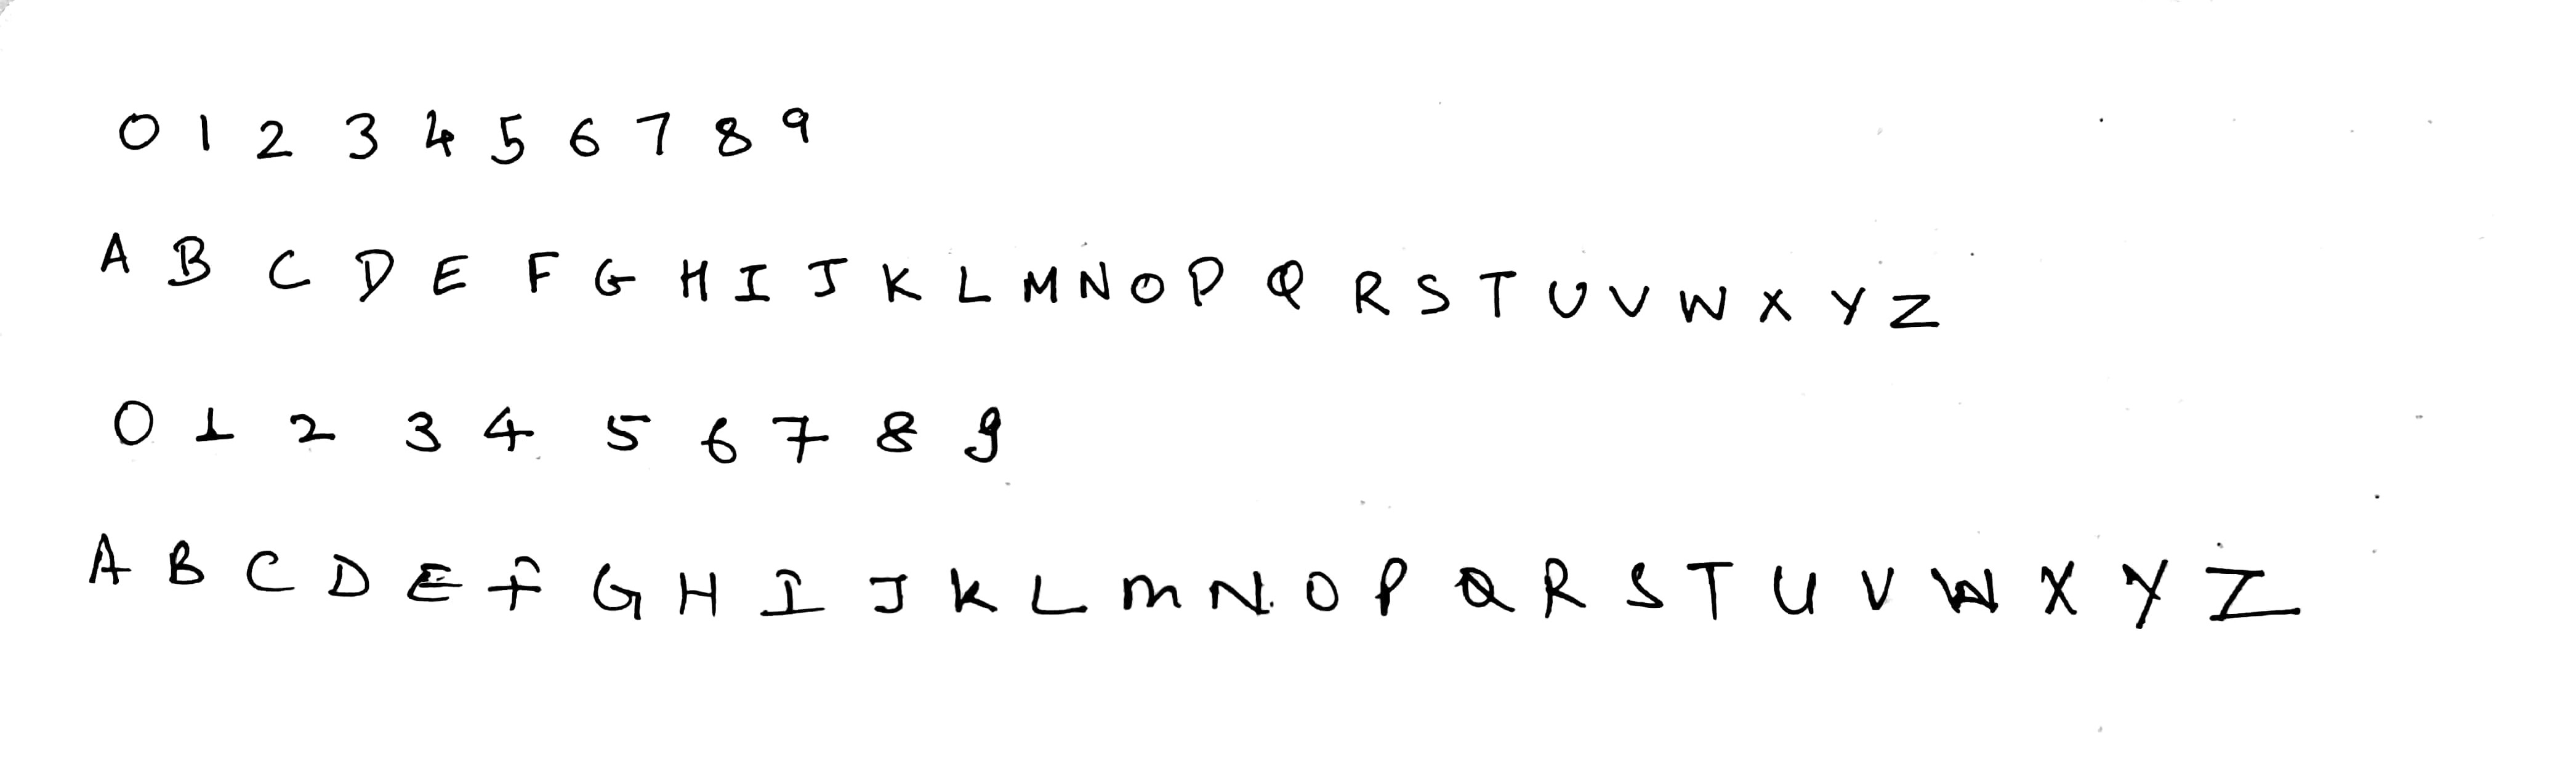 0 1 2 3 4 5 6 7 8 9
A B C D E F G H I J K L M N O P Q R S T U V W X Y Z
0 1 2 3 4 5 6 7 8 9
A B C D E f G H I J K L m N. O P Q R S T U V W X Y Z